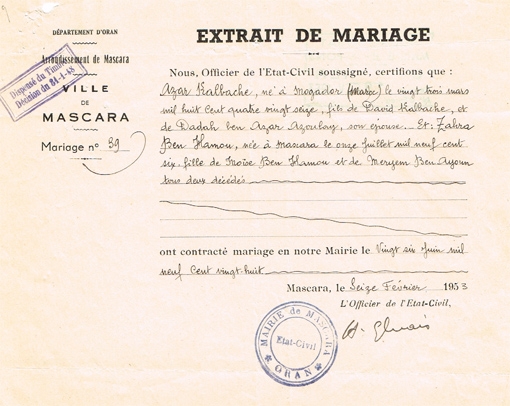 DÉPARTEMENT D'ORAN
Arrondissement de Mascara
Dispensé du Timbre
Décision du 31-1-48
VILLE
DE
MASCARA
Mariage n° 39
EXTRAIT DE MARIAGE
Nous, Officier de l'Etat-Civil soussigné, certifions que :
Azar Kalbache, né à Mogador (Maroc) le vingt trois mars
mil huit cent quatre vingt seize, fils de David Kalbache, et
de Dadah ben Azar Azoulay, son épouse. Et: Zahra
Ben Hamou, née à Mascara le onze Juillet mil neuf cent
six, fille de Moïse Ben Hamou et de Meryem Ben Ayoun
tous deux décédés
ont contracté mariage en notre Mairie le Vingt six Juin mil
neuf Cent vingt-huit
Mascara, le Seize Février 1953
L'Officier de l'Etat-Civil,
MAIRIE de MASCARA
Etat-Civil
ORAN